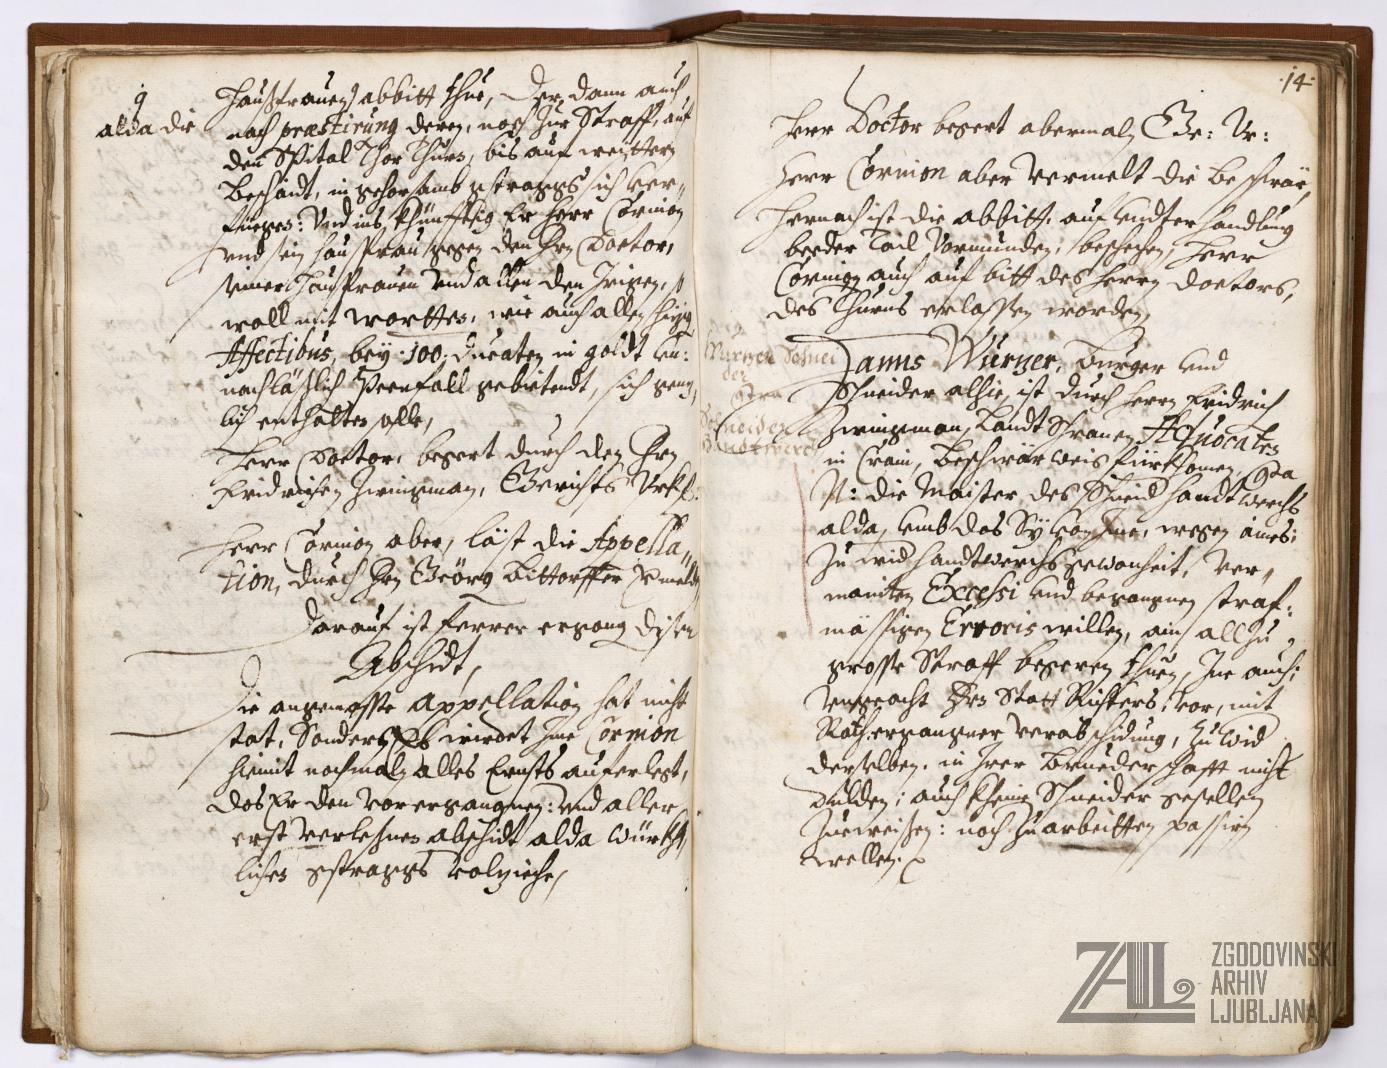 alda die
Haußfrauen abbitt thue, Der dann auch
nach præstirung deren, noch zur Straff, auf
den Spital Thor Thurn, bis auf weittern
Beschaidt, in gehorsamb gestraggs sich ver-
fuegen: Vnd ins khünfftig Er Herr Cormon
vnd sein Haußfrau gegen den Hrn Doctor,
seiner Haußfrauen vnd allen den Irigen, so
woll mit wortten, wie auch allen
Affectibus, bey .100. Ducaten in goldt vn:
nachläßlich Peenfall gebietendt, sich genz,
lich enthalten solle,
Herr Doctor, begert durch den Hrn
Fridrichen Zwingman, Gerichts Vrkh:
Herr Cormon aber, läst die Appella,,
tion, durch Hrn Geörg Bittorffer
Darauf ist ferrer ergang diser
Abschidt,
Die angemasste Appellation hat nicht
stat, Sonder Es wirdet Ime Cormon
hiemit nochmaln alles Ernsts auferlegt,
das Er den vorergangnen: vnd aller
erst verlesnen abschidt alda würkh,
lichen gstraggs volziehe,
.14.
Herr Doctor begert abermaln Ge: Vr:
Herr Cormon aber vermelt die beschwär,
Hernach ist die abbitt, auf vndterhandlung
beeder tail Vormunden, beschehen, Herr
Cormon auch auf bitt des Herrn Doctors,
des Thurns erlassen worden,
Wurzer Schnei
der
Schneider
Handtwerch
Hanns Wurzer, Burger vnd
Schneider alhie, ist durch Herrn Fridrich
Zwingman, Landt Schranen Aduocaten
in Crain, beschwärweis fürkhomen,
N: die Maister des Schneid Handtwerchs
alda, vmb das Sy wegen aines,
zu wid handtwerchs gewonheit, ver,,
mainten Excessi vnd begangnen straf,
mässigen Erroris willen, ain allzu
grosse Straff begeren thuen, Ine auch,
vngeacht Hrn Statt Richters, vor, mit
Rath, ergangner verabschidung, zu wid
derselben, in Irer Bruederschafft nicht
dulden, auch kheine Schneider gesellen
zueweisen: noch zuarbeitten passirn
wellen.
ZAL
ZGODOVINSKI
ARHIV
LJUBLJANA